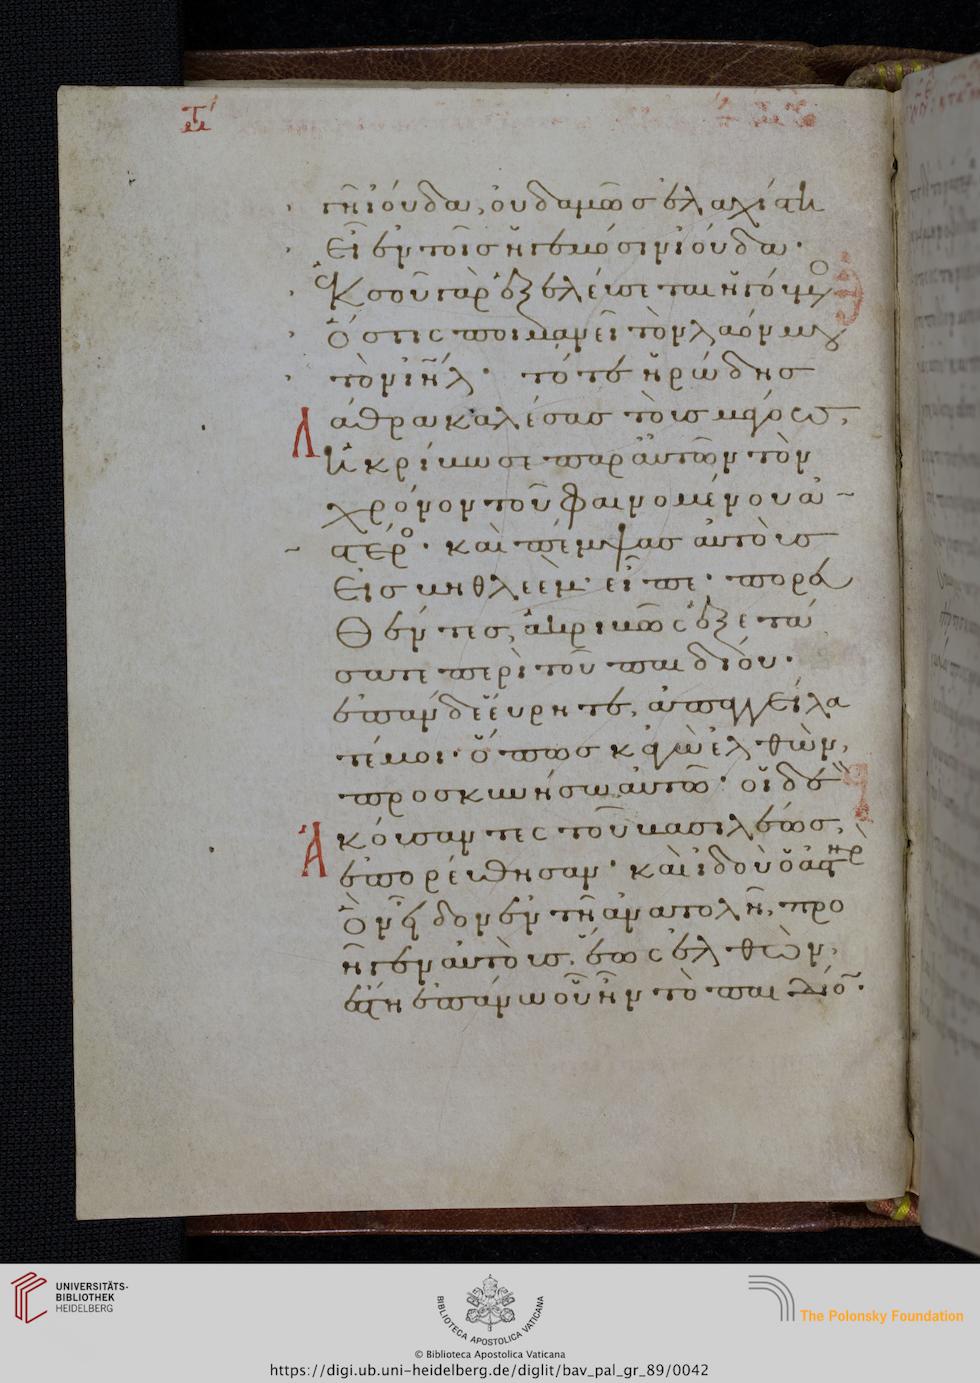 γῆ ἰούδα, οὐδαμῶς ἐλαχίστη
εἶ ἐν τοῖς ἡγεμόσιν ἰούδα·
ἐκ σοῦ γὰρ ἐξελεύσεται ἡγούμενος
ὅστις ποιμανεῖ τὸν λαόν μου
τὸν ἰηλ· τότε ἡρώδης
Λάθρα καλέσας τοὺς μάγους,
ἠκρίβωσε παρ' αὐτῶν τὸν
χρόνον τοῦ φαινομένου ἀ
στέρος· καὶ πέμψας αὐτοὺς
εἰς βηθλεὲμ εἶπε· πορευ
θέντες, ἀκριβῶς ἐξετά
σατε περὶ τοῦ παιδίου·
ἐπὰν δὲ εὕρητε, ἀπαγγείλα
τέ μοι· ὅπως κἀγὼ ἐλθὼν,
προσκυνήσω αὐτῶ· οἱ δὲ
Ἀκούσαντες τοῦ βασιλέως,
ἐπορεύθησαν· καὶ ἰδοὺ ὁ ἀστὴρ
ὃν εἶδον ἐν τῆ ἀνατολῆ, προ
ῆγεν αὐτοὺς, ἕως ἐλθὼν,
ἔστη ἐπάνω οὗ ἦν τὸ παιδίον·
UNIVERSITÄTS-
BIBLIOTHEK
HEIDELBERG
BIBLIOTECA APOSTOLICA VATICANA
© Biblioteca Apostolica Vaticana
The Polonsky Foundation
https://digi.ub.uni-heidelberg.de/diglit/bav_pal_gr_89/0042